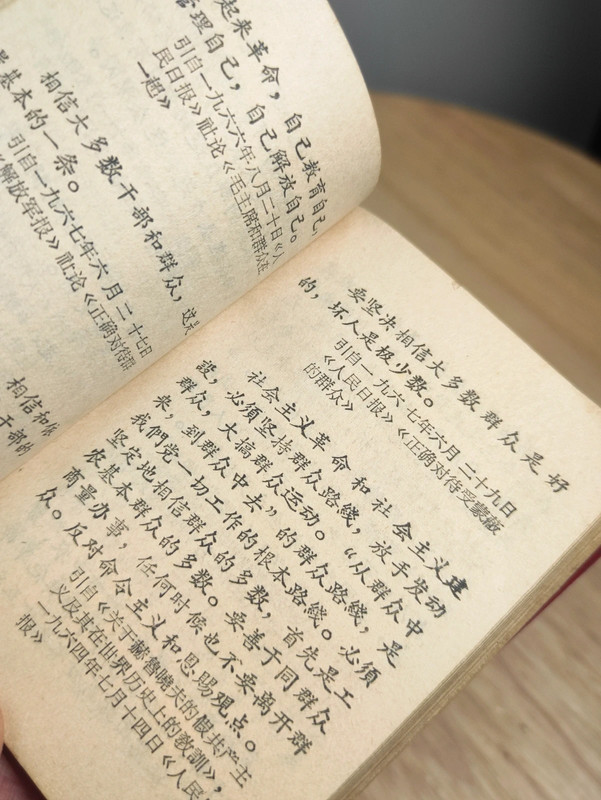 起来革命，自己教育自己，
管理自己，自己解放自己。
引自一九六六年八月二十日《人
民日报》社论《毛主席和群众在
一起》
相信大多数干部和群众，这是
最基本的一条。
引自一九六七年六月二十七日
《解放军报》社论《正确对待群
相信和依
干部的
要坚决相信大多数群众是好
的，坏人是极少数。
引自一九六七年六月二十九日
《人民日报》《正确对待受蒙蔽
的群众》
社会主义革命和社会主义建
设，必须坚持群众路线，放手发动
群众，大搞群众运动。“从群众中
来，到群众中去”的群众路线，是
我們党一切工作的根本路线。必須
坚定地相信群众的多数，首先是工
农基本群众的多数。要善于同群众
商量办事，任何时候也不要离开群
众。反对命令主义和恩賜观点。
引自《关于赫魯曉夫的假共产主
义及其在世界历史上的教訓》，
一九六四年七月十四日《人民
报》